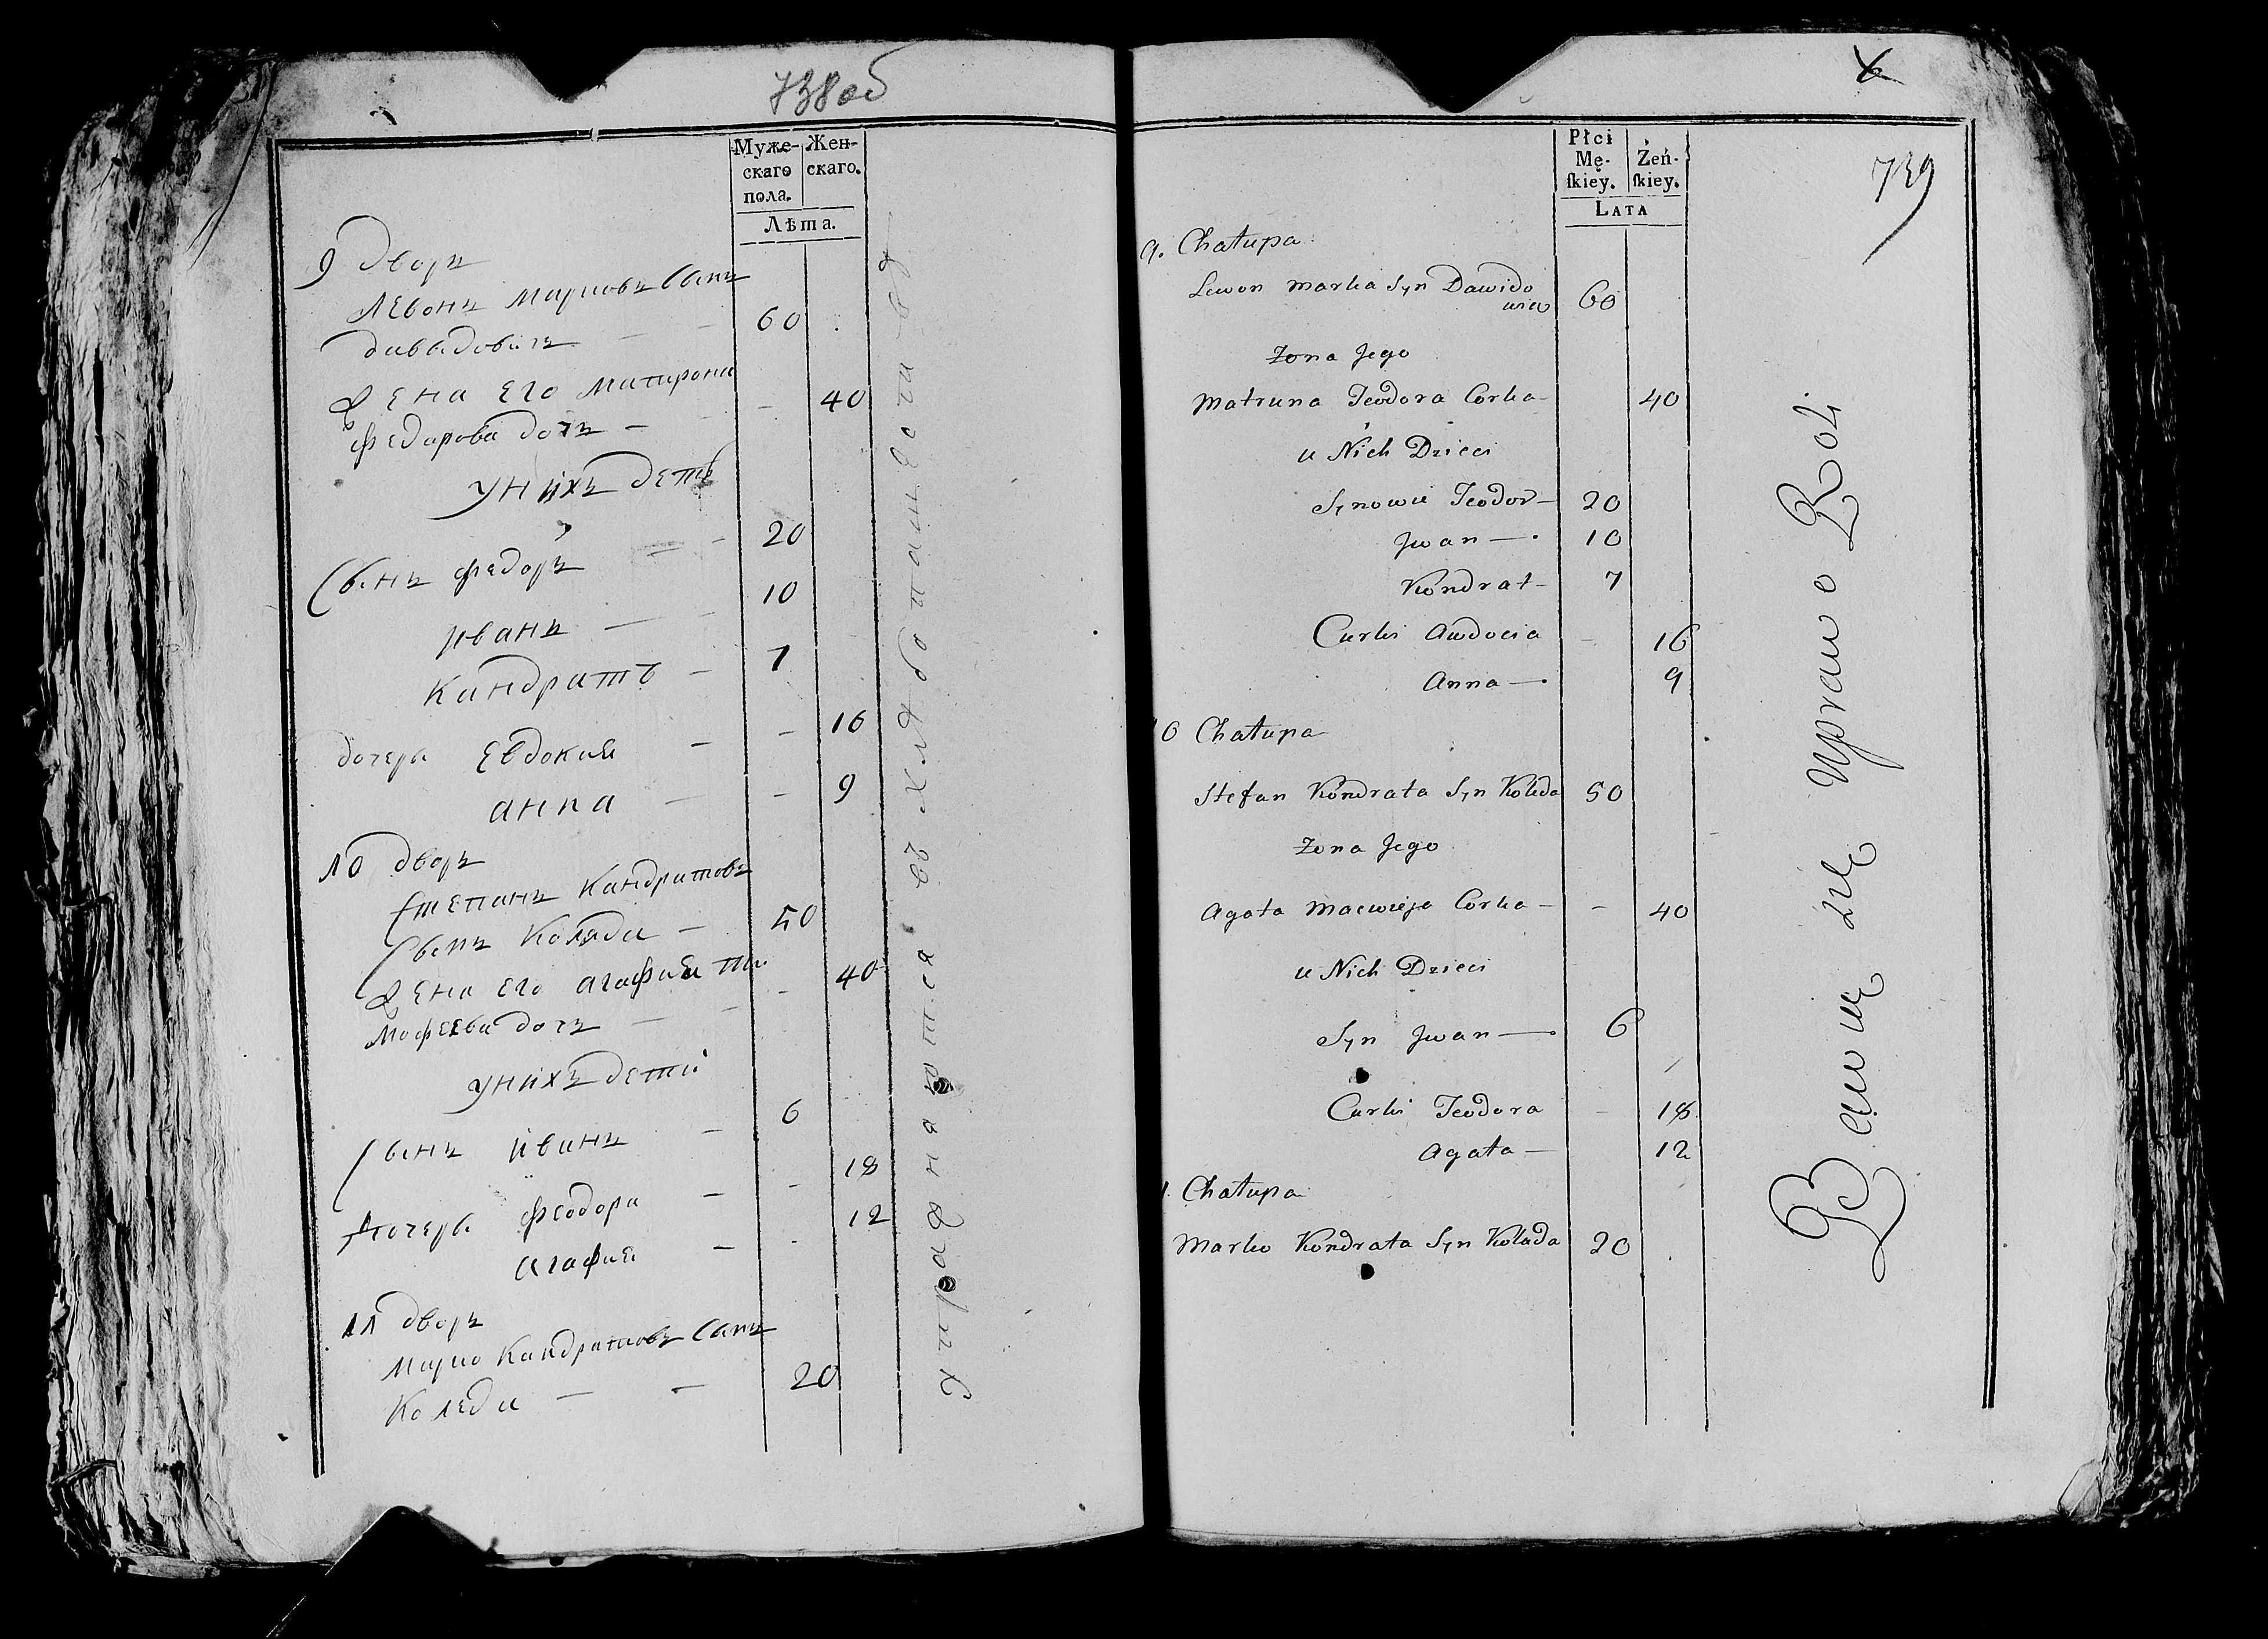 738об
Муже-
скаго
пола.
Жен-
скаго.
Лѣта.
9 дворъ
Левонъ Марковъ Сынъ
давыдовичъ — — 60
Жена его Матрона
федорова дочъ — — 40
у нихъ дети
Сынъ федоръ — — 20
иванъ — — 10
Кандратъ — 7
дочери Евдокия — — 16
анна — — 9
10 дворъ
Степанъ Кандратовъ
Сынъ Коляда — 50
Жена его агафия ти
мофеева дочъ — — 40
у нихъ дети
Сынъ иванъ — 6
дочери феодора — — 18
агафия — — 12
11 дворъ
Марко Кандратовъ Сынъ
Коледа — — 20
упражняются въ хлебопашествѣ
739
Płci
Mę-
ſkiey.
Żeń-
ſkiey.
LATA
9. Chałupa
Lewon Marka Syn Dawido
wicz 60
Żona Jego
Matruna Teodora Corka — 40
u Nich Dzieci
Synowie Teodor — 20
Jwan — 10
Kondrat — 7
Curki Awdocia — 16
Anna — 9
10 Chałupa
Stefan Kondrata Syn Koleda 50
Żona Jego
Agata Macwieja Corka — — 40
u Nich Dzieci
Syn Jwan — 6
Curki Teodora — 18
Agata — 12
Chałupa
Marko Kondrata Syn Kolada 20
Bawią się Uprawo Roli